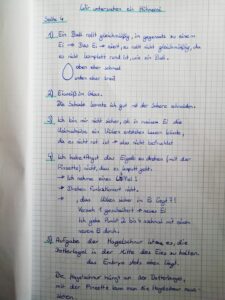 Wir untersuchen ein Hühnerei
Seite 4
1) Ein Ball rollt gleichmäßig, im gegensatz zu einem
Ei → Das Ei → eiert, es rollt nicht gleichmäßig, da
es nicht komplett rund ist, wie ein Ball.
oben eher schmal
unten eher breit
2) Eiweiß im Glas.
Die Schale konnte ich gut der Schere schneiden.
3) Ich bin mir nicht sicher, ob in meinem Ei die
Keimscheibe ein Küken entstehen lassen könnte,
da es nicht rot ist → das nicht befruchtet
4) Ich habe Angst das Eigelb zu drehen (mit der
Pinzette) nicht, dass es kaputt geht.
→ Ich nehme einen Löffel!
→ Drehen funktioniert nicht.
, dass vorher schon im Ei liegt?!
Versuch 1 gescheitert → neues Ei
Ich gebe Punkt 2 bis 4 nochmal mit einem
neuen Ei durch.
5) Aufgabe der Hagelschnur ist es, die
Dotterkugel in der Mitte des Eies zu halten.
das Embryo stets oben liegt.
Die Hagelschnur hängt an der Dotterkugel,
mit der Pinzette kann man die Hagelschnur